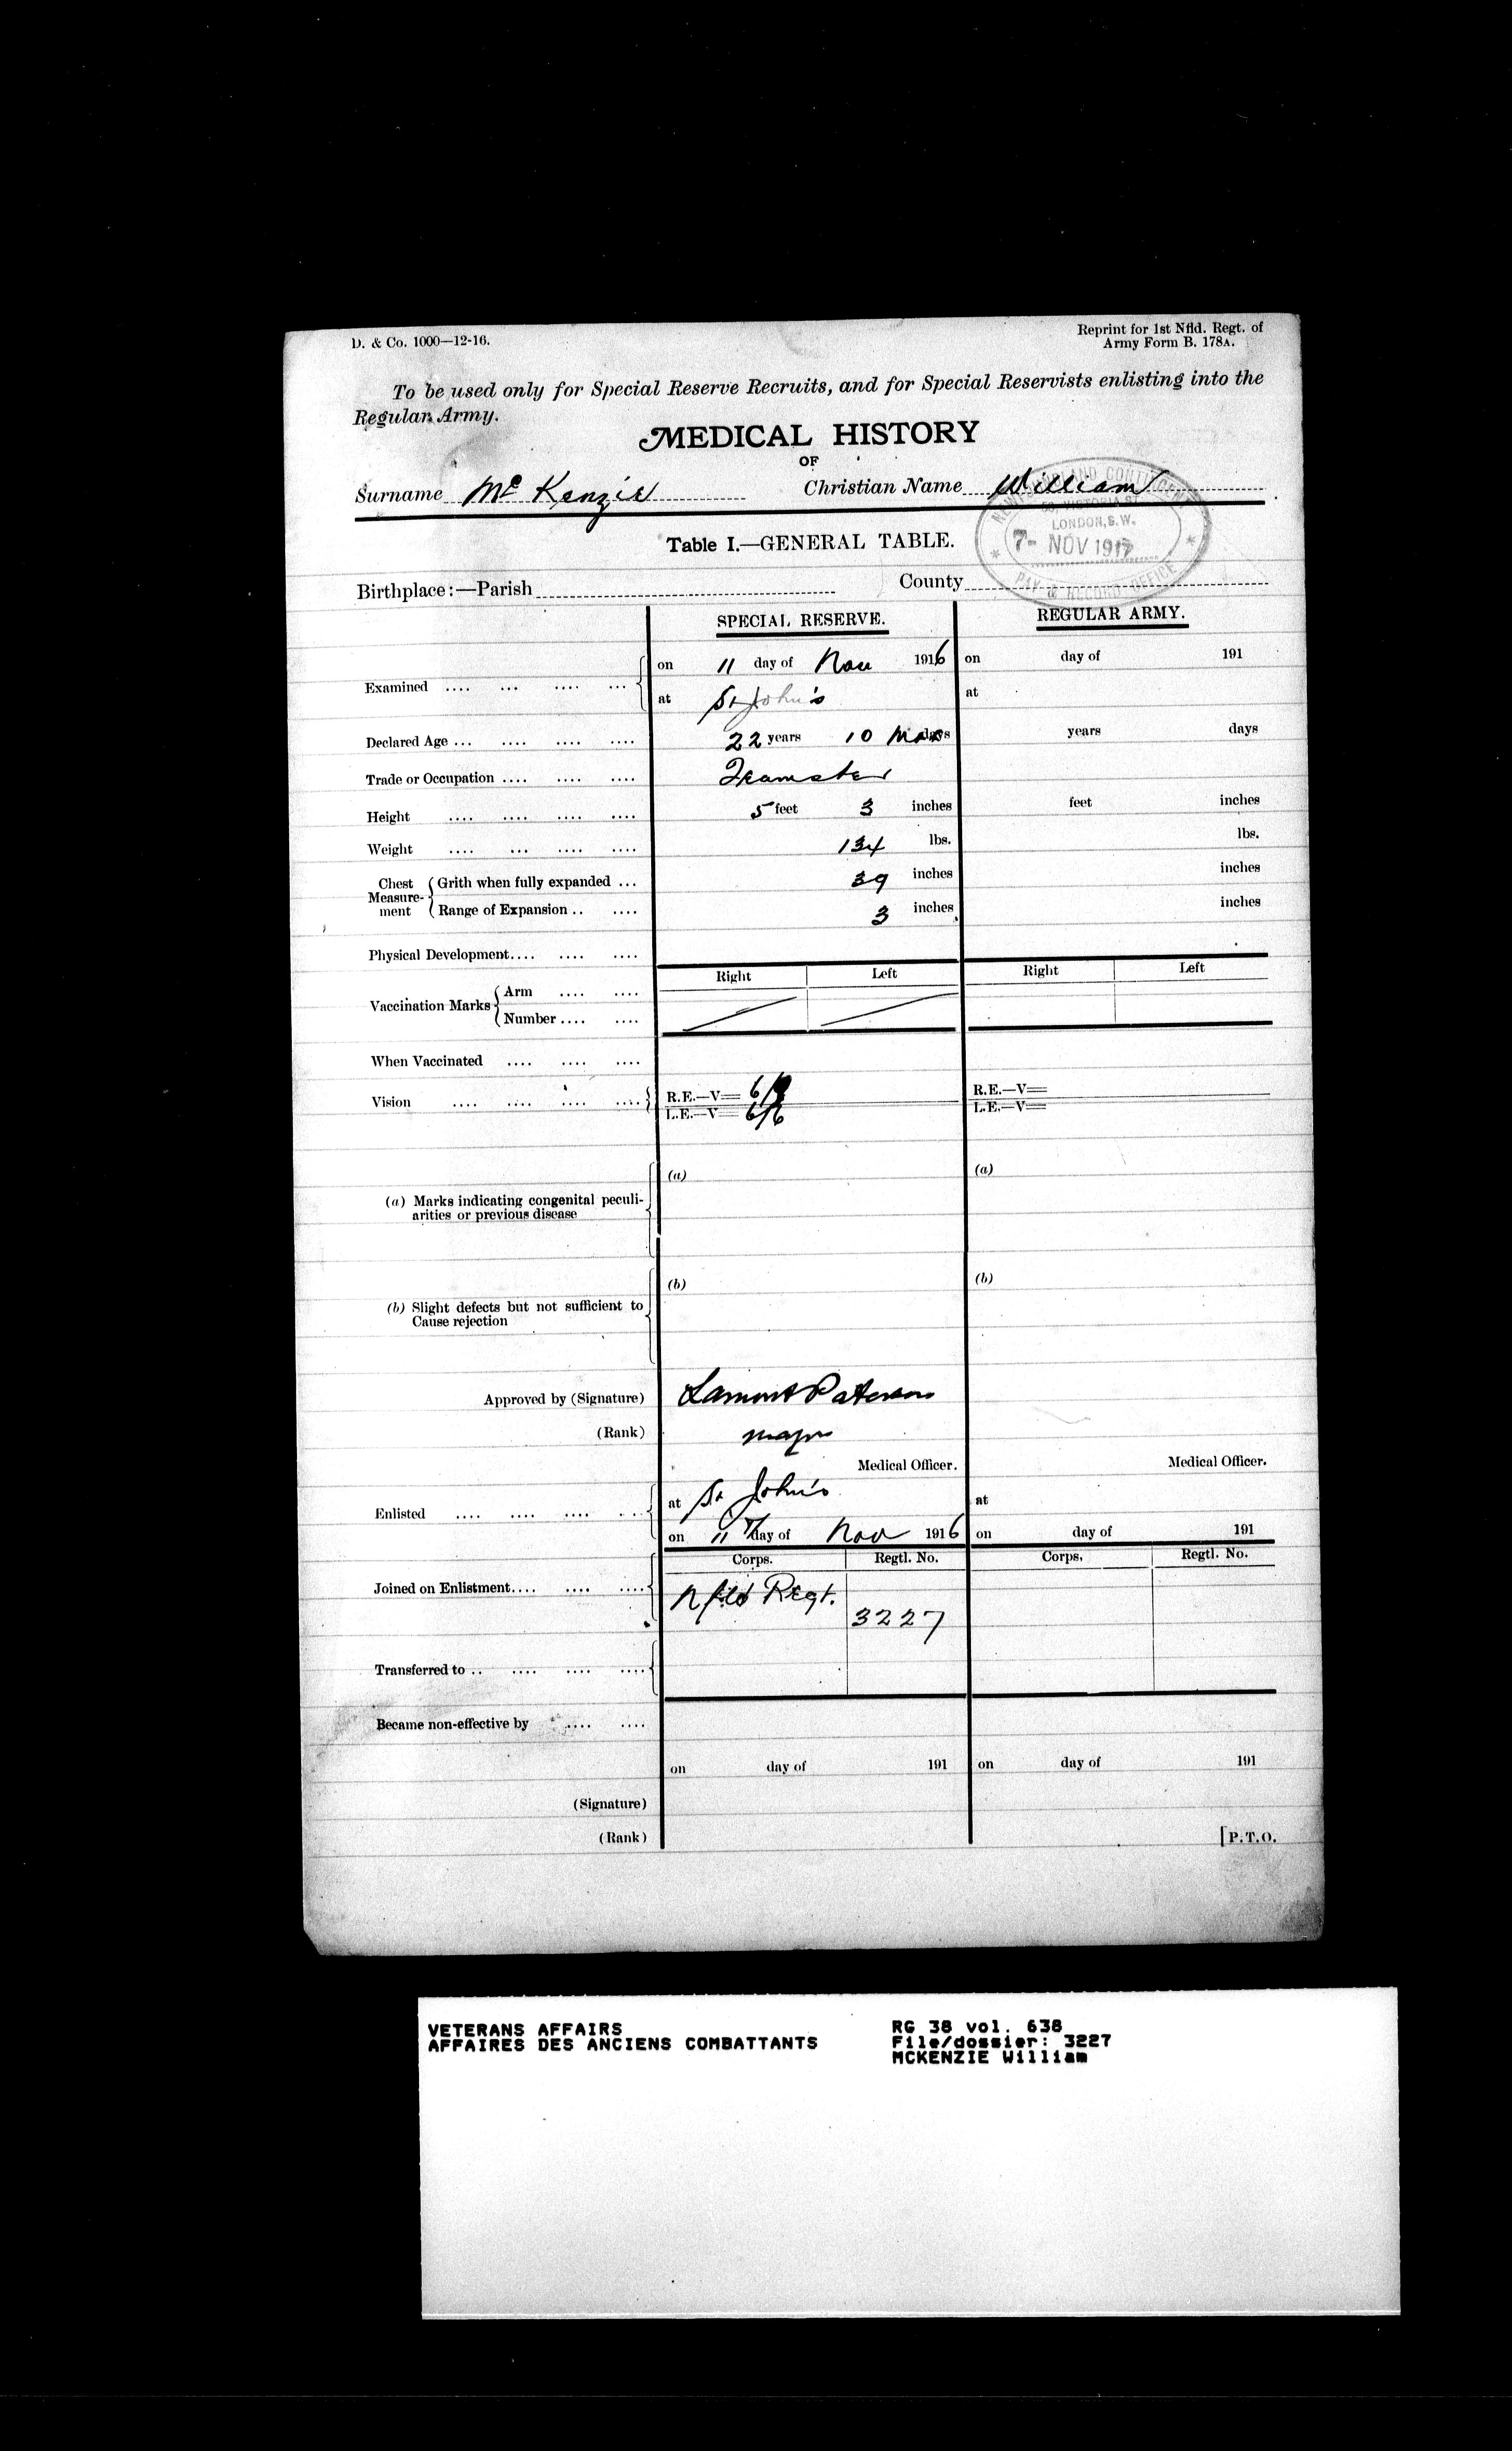 D. & Co. 1000—12-16.
Reprint for 1st Nfld. Regt. of
Army Form B. 178A.
To be used only for Special Reserve Recruits, and for Special Reservists enlisting into the
Regular Army.
MEDICAL HISTORY
OF
Surname Mc Kenzie Christian Name William
NEWFOUNDLAND CONTINGENT
58, VICTORIA ST.
LONDON, S.W.
7- NOV 1917
PAY & RECORD OFFICE
Table I.—GENERAL TABLE.
Birthplace:—Parish County
SPECIAL RESERVE. REGULAR ARMY.
Examined .... ... .... ... on 11 day of Nov 1916 on day of 191
at St John's at
Declared Age ... .... .... .... 22 years 10 Mos days years days
Trade or Occupation .... .... .... Teamster
Height .... .... .... .... 5 feet 3 inches feet inches
Weight .... ... .... .... 134 lbs. lbs.
Chest Measure-ment Grith when fully expanded ... 39 inches inches
Range of Expansion .. .... 3 inches inches
Physical Development.... .... ....
Right Left Right Left
Vaccination Marks Arm .... ....
Number .... ....
When Vaccinated .... .... ....
Vision .... .... .... .... R.E.—V= 6/ R.E.—V=
L.E.—V= 6/6 L.E.—V=
(a) Marks indicating congenital peculi-
arities or previous disease
(a) (a)
(b) Slight defects but not sufficient to
Cause rejection
(b) (b)
Approved by (Signature) Lamont Paterson
(Rank) major
Medical Officer. Medical Officer.
Enlisted .... .... .... ... at St John's at
on 11th day of Nov 1916 on day of 191
Corps. Regtl. No. Corps. Regtl. No.
Joined on Enlistment.... .... .... Nfld Regt. 3227
Transferred to .. .... .... ....
Became non-effective by .... ....
on day of 191 on day of 191
(Signature)
(Rank)
[P.T.O.
VETERANS AFFAIRS RG 38 vol. 638
AFFAIRES DES ANCIENS COMBATTANTS File/dossier: 3227
MCKENZIE William